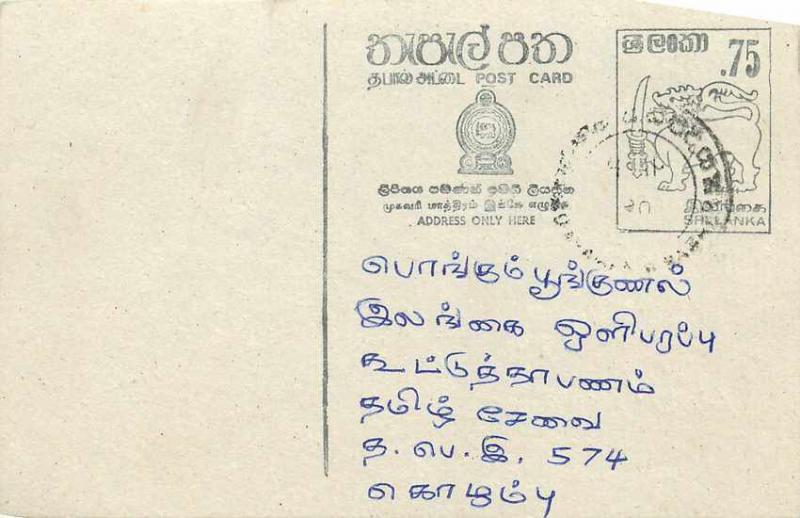 තැපැල් පත
தபால் அட்டை POST CARD
ලිපිනය පමණක් මෙහි ලියන්න
முகவரி மாத்திரம் இங்கே எழுதுக
ADDRESS ONLY HERE
ශ්‍රී ලංකා
.75
இலங்கை
SRI LANKA
பொங்கும் பூங்குணல்
இலங்கை ஒளிபரப்பு
கூட்டுத்தாபணம்
தமிழ் சேவை
த. பெ. இ. 574
கொழம்பு